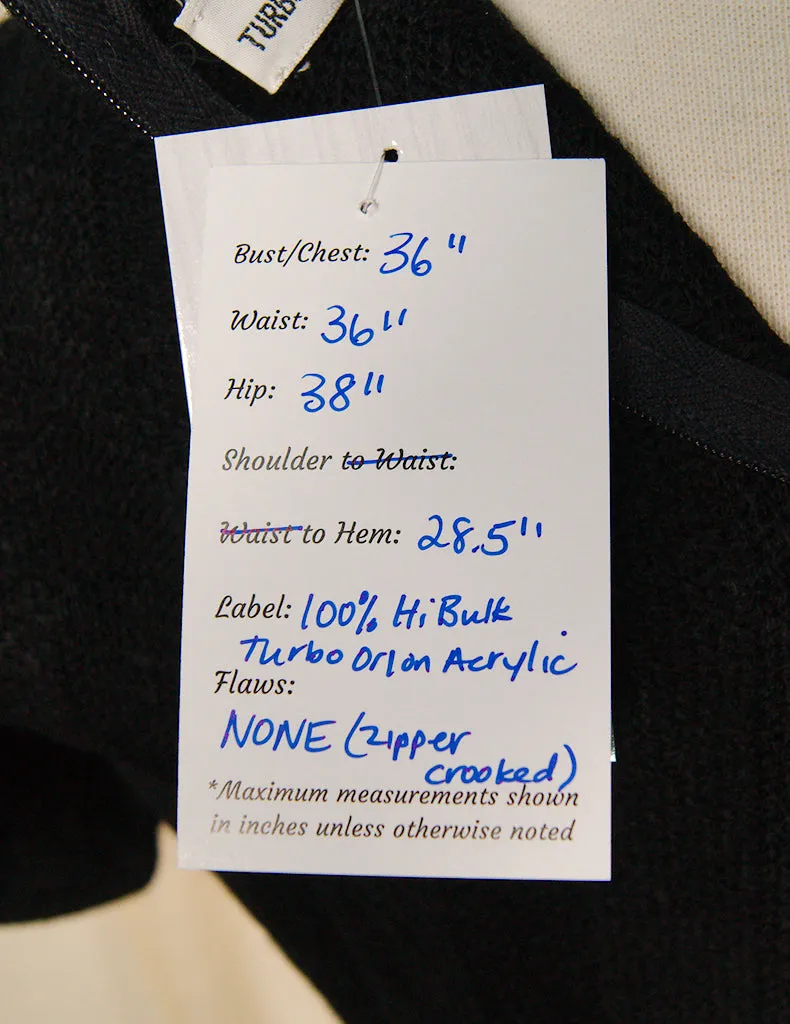 TURB
Bust/Chest: 36"
Waist: 36"
Hip: 38"
Shoulder to Waist:
Waist to Hem: 28.5"
Label: 100% Hi Bulk
Turbo Orlon Acrylic
Flaws:
NONE (zipper
crooked)
*Maximum measurements shown
in inches unless otherwise noted